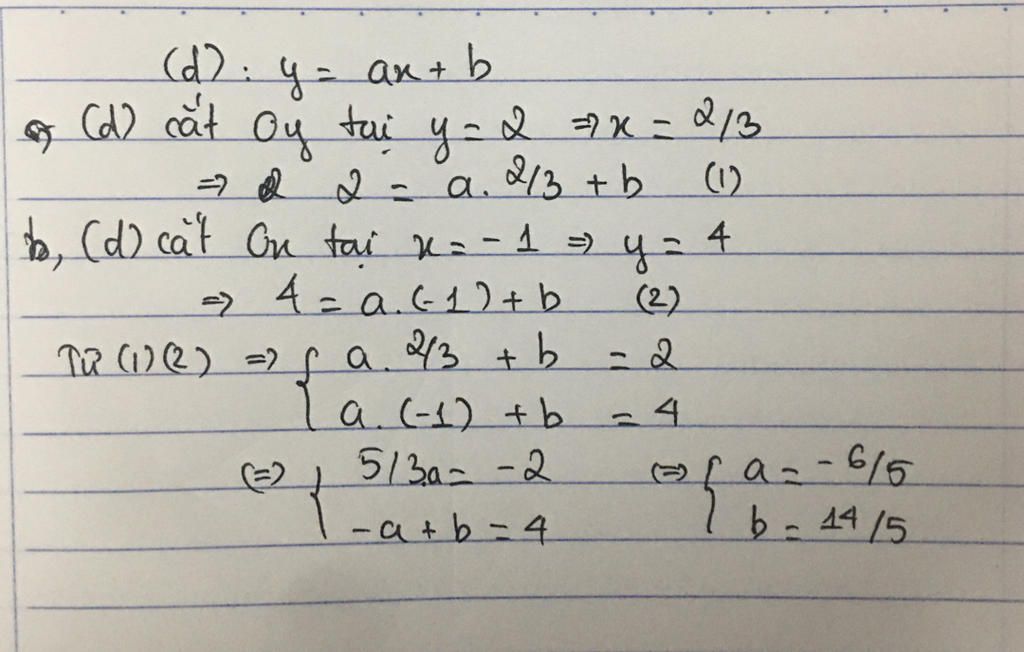 (d): y = ax + b
a, (d) cắt Oy tại y = 2 => x = 2/3
=> 2 = a. 2/3 + b (1)
b, (d) cắt Ox tại x = -1 => y = 4
=> 4 = a.(-1) + b (2)
Từ (1) (2) => { a. 2/3 + b = 2
a. (-1) + b = 4
(=> { 5/3a = -2 (=> { a = -6/5
-a + b = 4 b = 14/5